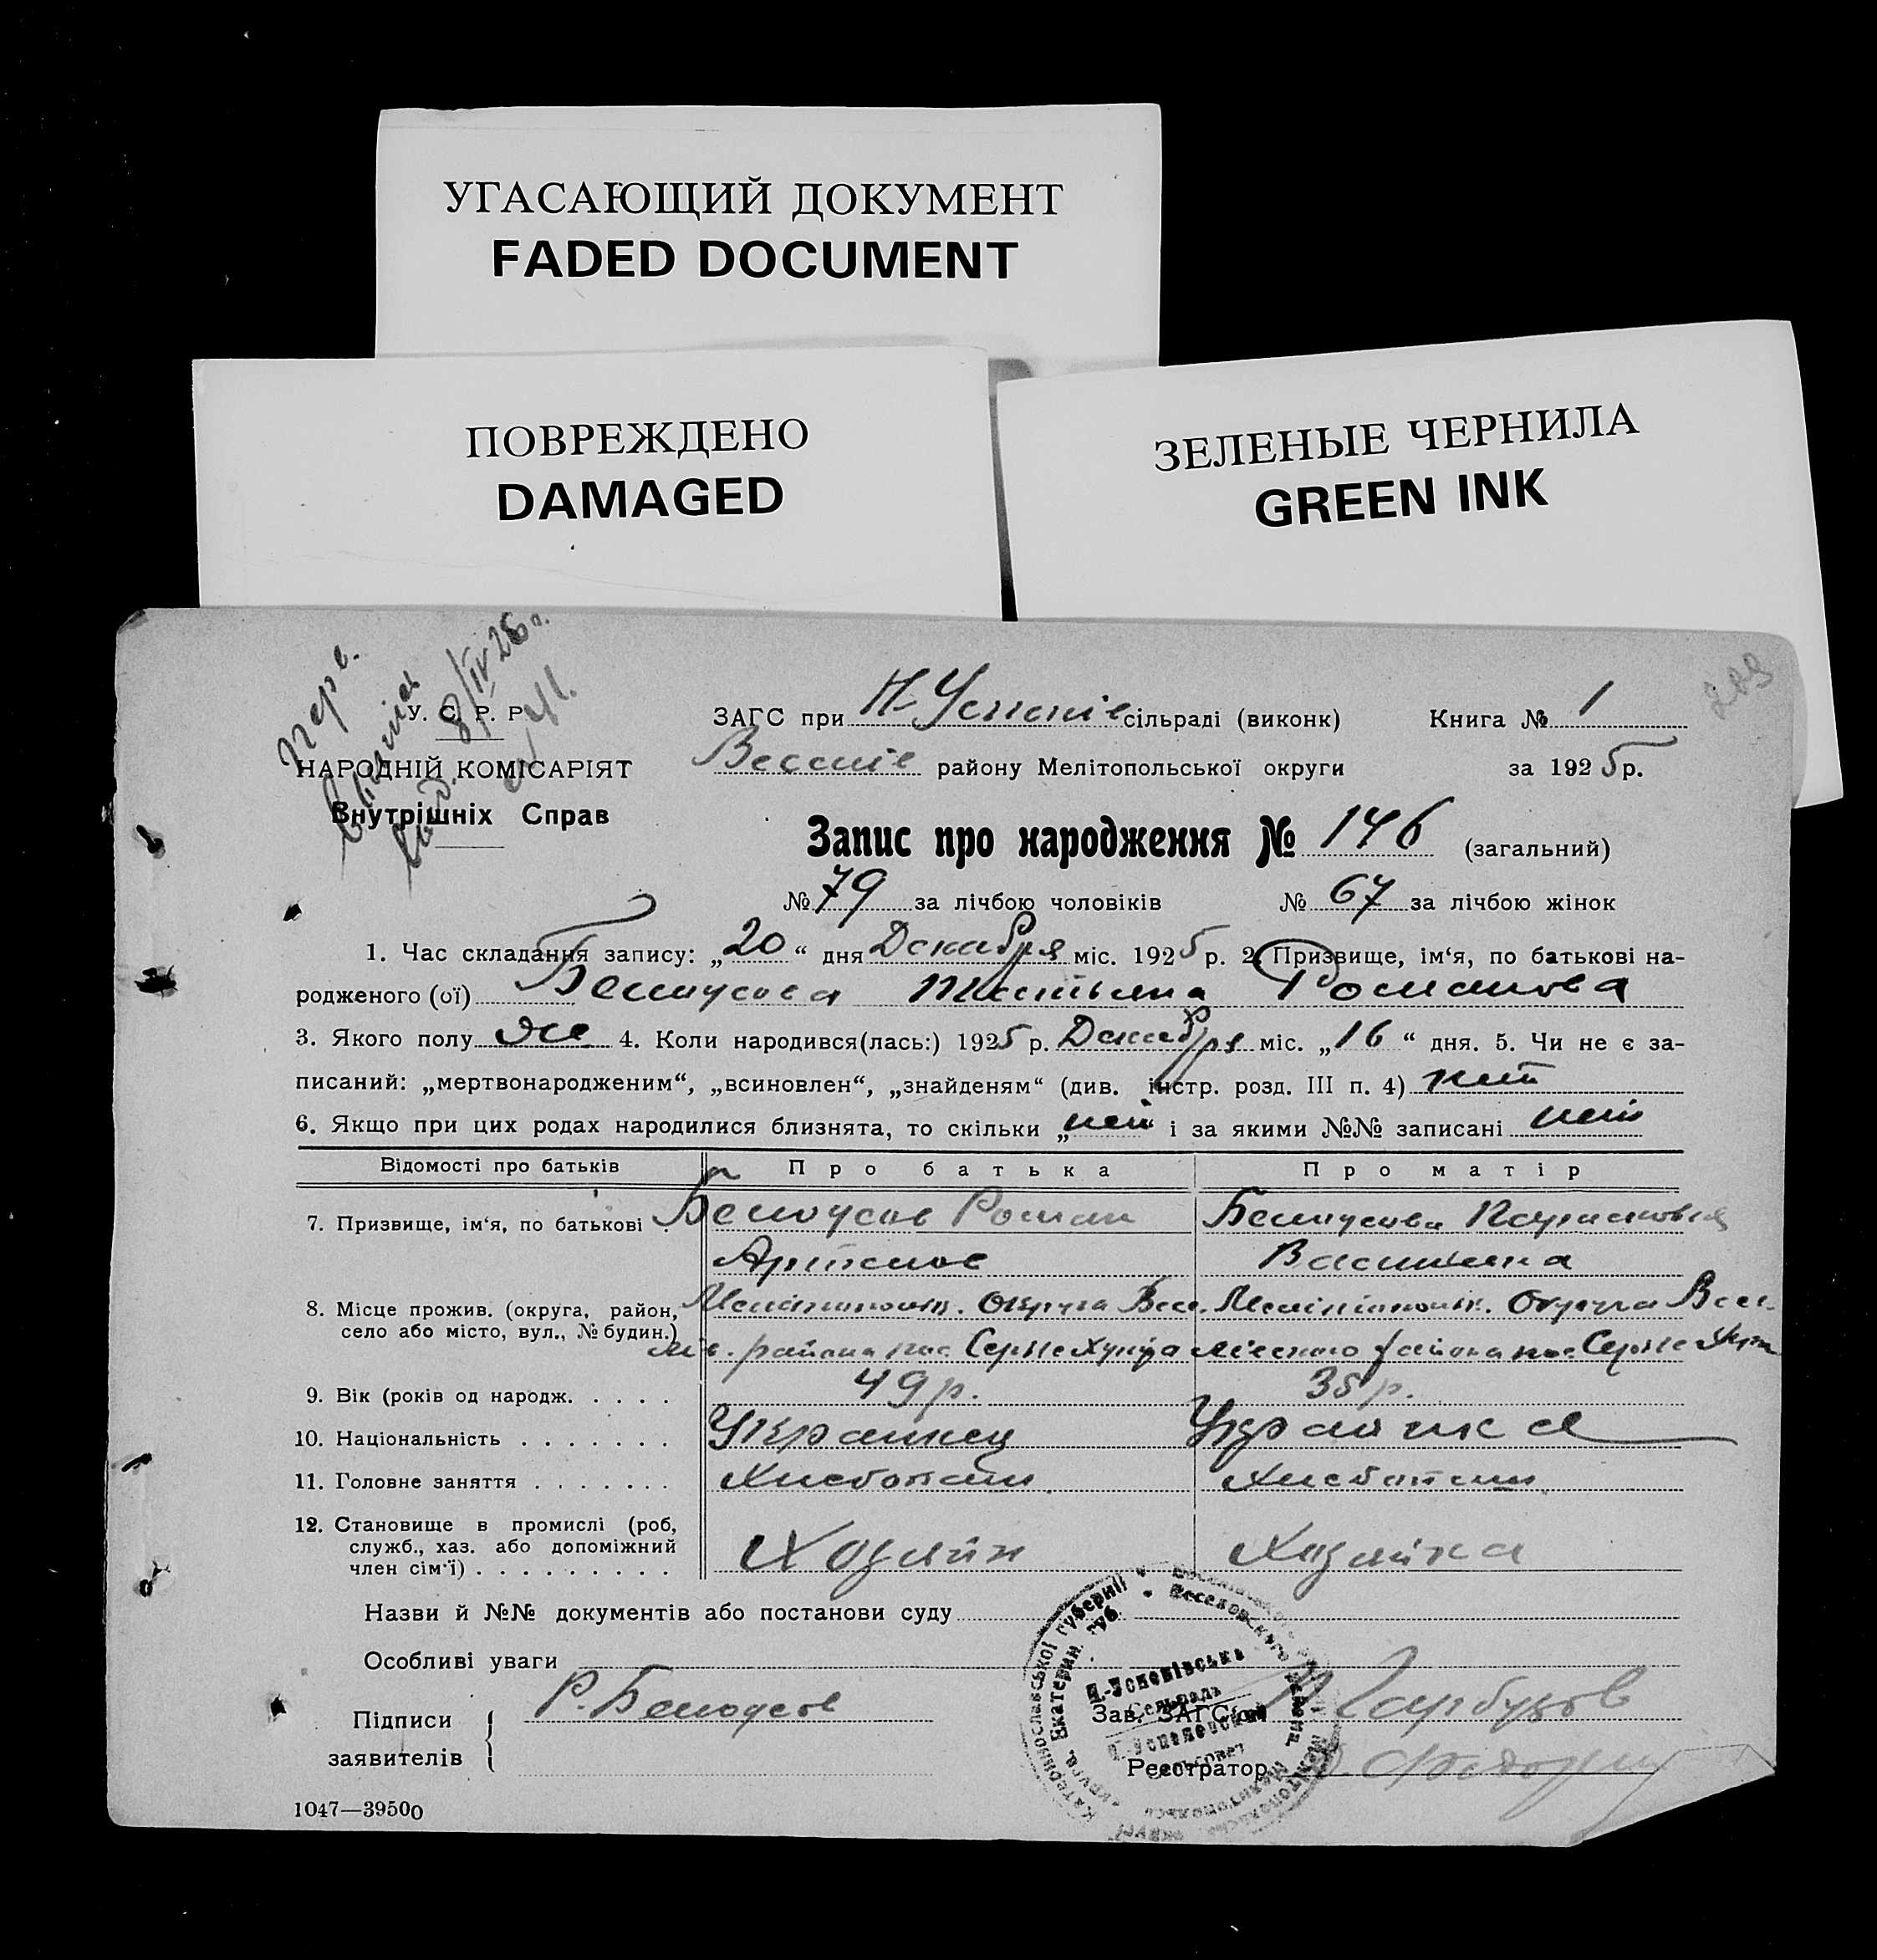 УГАСАЮЩИЙ ДОКУМЕНТ
FADED DOCUMENT
ПОВРЕЖДЕНО
DAMAGED
ЗЕЛЕНЫЕ ЧЕРНИЛА
GREEN INK
209
8/IV 26 г.
У. С. Р. Р.
НАРОДНІЙ КОМІСАРІЯТ
Внутрішніх Справ
ЗАГС при сільраді (виконк) Книга № 1
Весел району Мелітопольської округи за 1925 р.
Запис про народження № 146 (загальний)
№ 79 за лічбою чоловіків № 67 за лічбою жінок
1. Час складання запису: „20“ дня Декабря міс. 1925 р. 2. Призвище, ім‘я, по батькові на-
родженого (ої) Белоусова Татьяна Романова
3. Якого полу же 4. Коли народився(лась:) 1925 р. Декабря міс. „16“ дня. 5. Чи не є за-
писаний: „мертвонародженим“, „всиновлен“, „знайденям“ (див. інстр. розд. III п. 4) нет
6. Якщо при цих родах народилися близнята, то скільки „нет“ і за якими №№ записані нет
Відомості про батьків Про батька Про матір
7. Призвище, ім‘я, по батькові . Белоусов Роман Белоусова
Артемов Васильена
8. Місце прожив. (округа, район, округа Весе. Округа Весе.
село або місто, вул., № будин.) района пос. района пос.
9. Вік (років од народж. . . . . 49 р. 35 р.
10. Національність . . . . . . . Украинец Украинка
11. Головне заняття . . . . . . . Хлебопаш. Хлебопаш.
12. Становище в промислі (роб,
служб., хаз. або допоміжний Хозяин Хозяйка
член сім‘ї) . . . . . . . . . .
Назви й №№ документів або постанови суду
Особливі уваги
Підписи Р. Белоусов Зав. ЗАГС‘ом Гарбузов
заявителів Реєстратор
1047—39500